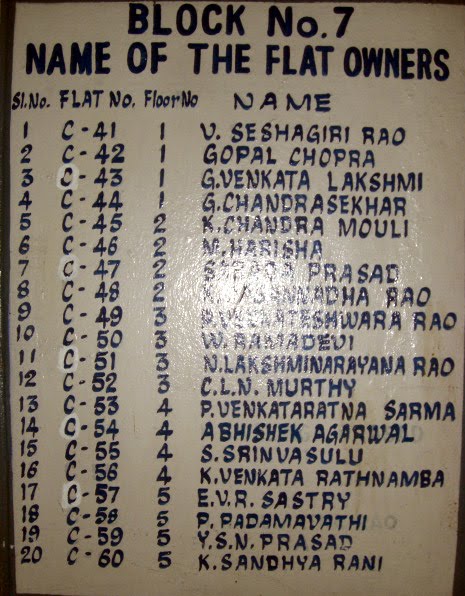 BLOCK No.7
NAME OF THE FLAT OWNERS
Sl.No. FLAT No. Floor No NAME
1 C-41 1 V. SESHAGIRI RAO
2 C-42 1 GOPAL CHOPRA
3 C-43 1 G.VENKATA LAKSHMI
4 C-44 1 G.CHANDRASEKHAR
5 C-45 2 K.CHANDRA MOULI
6 C-46 2 M.HARISHA
7 C-47 2 PRASAD
8 C-48 2 RAO
9 C-49 3 RAO
10 C-50 3 W.RAMADEVI
11 C-51 3 N.LAKSHMINARAYANA RAO
12 C-52 3 C.L.N. MURTHY
13 C-53 4 P.VENKATARATNA SARMA
14 C-54 4 ABHISHEK AGARWAL
15 C-55 4 S.SRINVASULU
16 C-56 4 K.VENKATA RATHNAMBA
17 C-57 5 E.V.R. SASTRY
18 C-58 5 P. PADAMAVATHI
19 C-59 5 Y.S.N. PRASAD
20 C-60 5 K.SANDHYA RANI